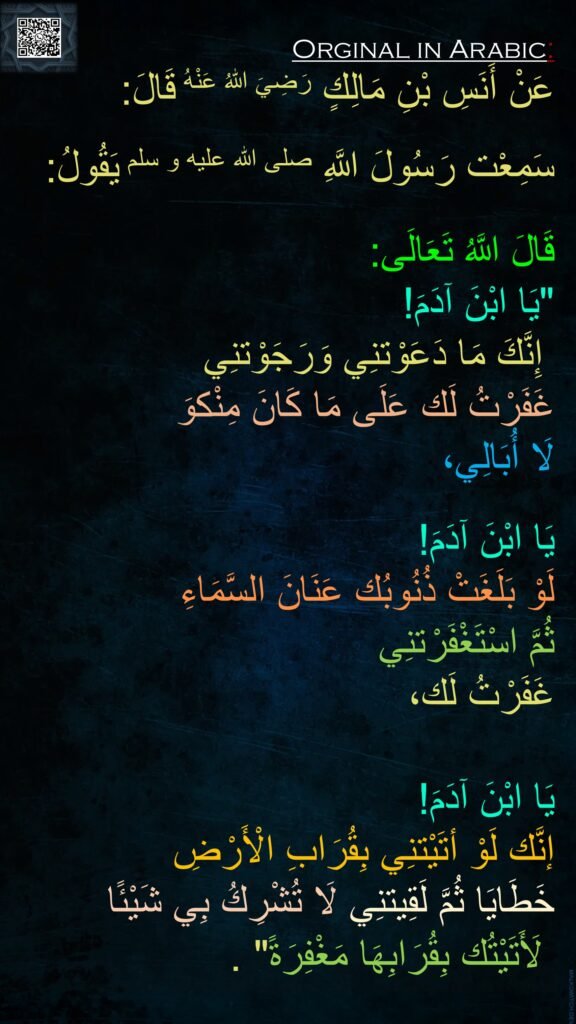 Orginal in Arabic:
عَنْ أَنَسِ بْنِ مَالِكٍ رَضِيَ اللهُ عَنْهُ قَالَ:
سَمِعْت رَسُولَ اللَّهِ صلى الله عليه و سلم يَقُولُ:
قَالَ اللَّهُ تَعَالَى:
"يَا ابْنَ آدَمَ!
إِنَّكَ مَا دَعَوْتنِي وَرَجَوْتنِي
غَفَرْتُ لَك عَلَى مَا كَانَ مِنْكوَ
لَا أُبَالِي،
يَا ابْنَ آدَمَ!
لَوْ بَلَغَتْ ذُنُوبُك عَنَانَ السَّمَاءِ
ثُمَّ اسْتَغْفَرْتنِي
غَفَرْتُ لَك،
يَا ابْنَ آدَمَ!
إنَّك لَوْ أتَيْتنِي بِقُرَابِ الْأَرْضِ
خَطَايَا ثُمَّ لَقِيتنِي لَا تُشْرِكُ بِي شَيْئًا
لَأَتَيْتُك بِقُرَابِهَا مَغْفِرَةً" .